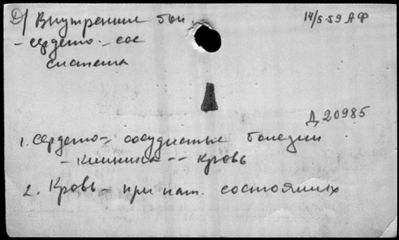 Д/ Внутренние бол. 14/5-59 АФ
- сердечно-сос
система
Д 20985
1. Сердечно-сосудистые болезни
- клиника -- кровь
2. Кровь - при пат. состояниях